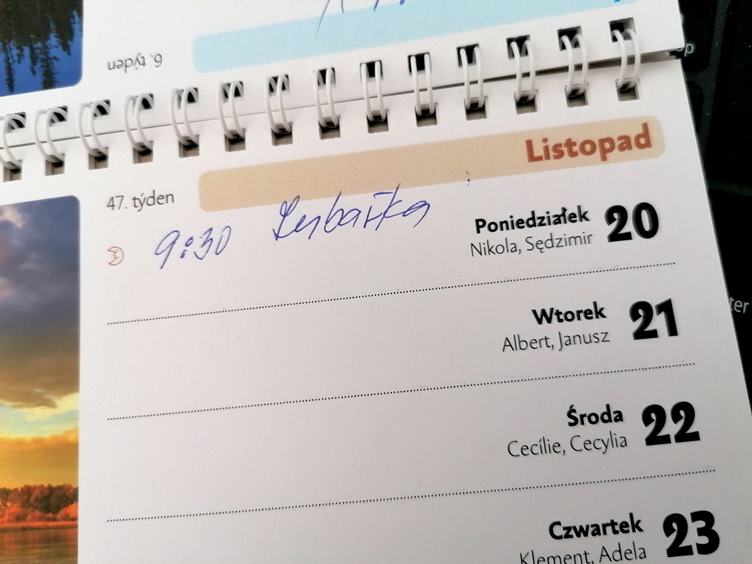 6. týden
Listopad
47. týden
9:30 Zubařka
Poniedziałek 20
Nikola, Sędzimir
Wtorek 21
Albert, Janusz
Środa 22
Cecílie, Cecylia
Czwartek 23
Klement, Adela